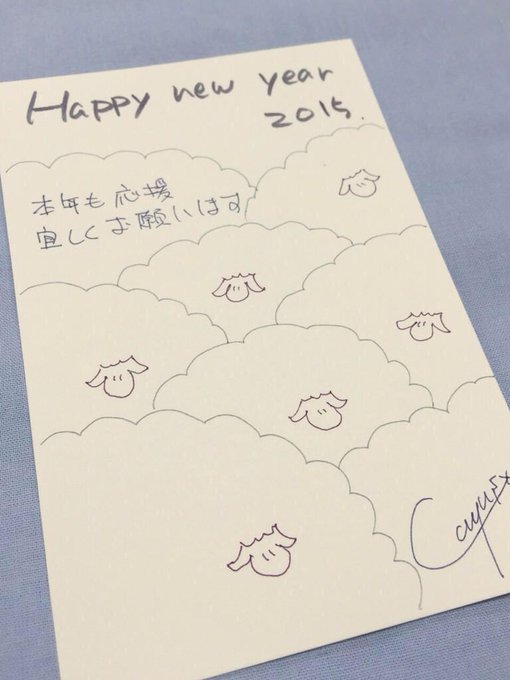 Happy new year
2015.
本年も応援
宜しくお願いします